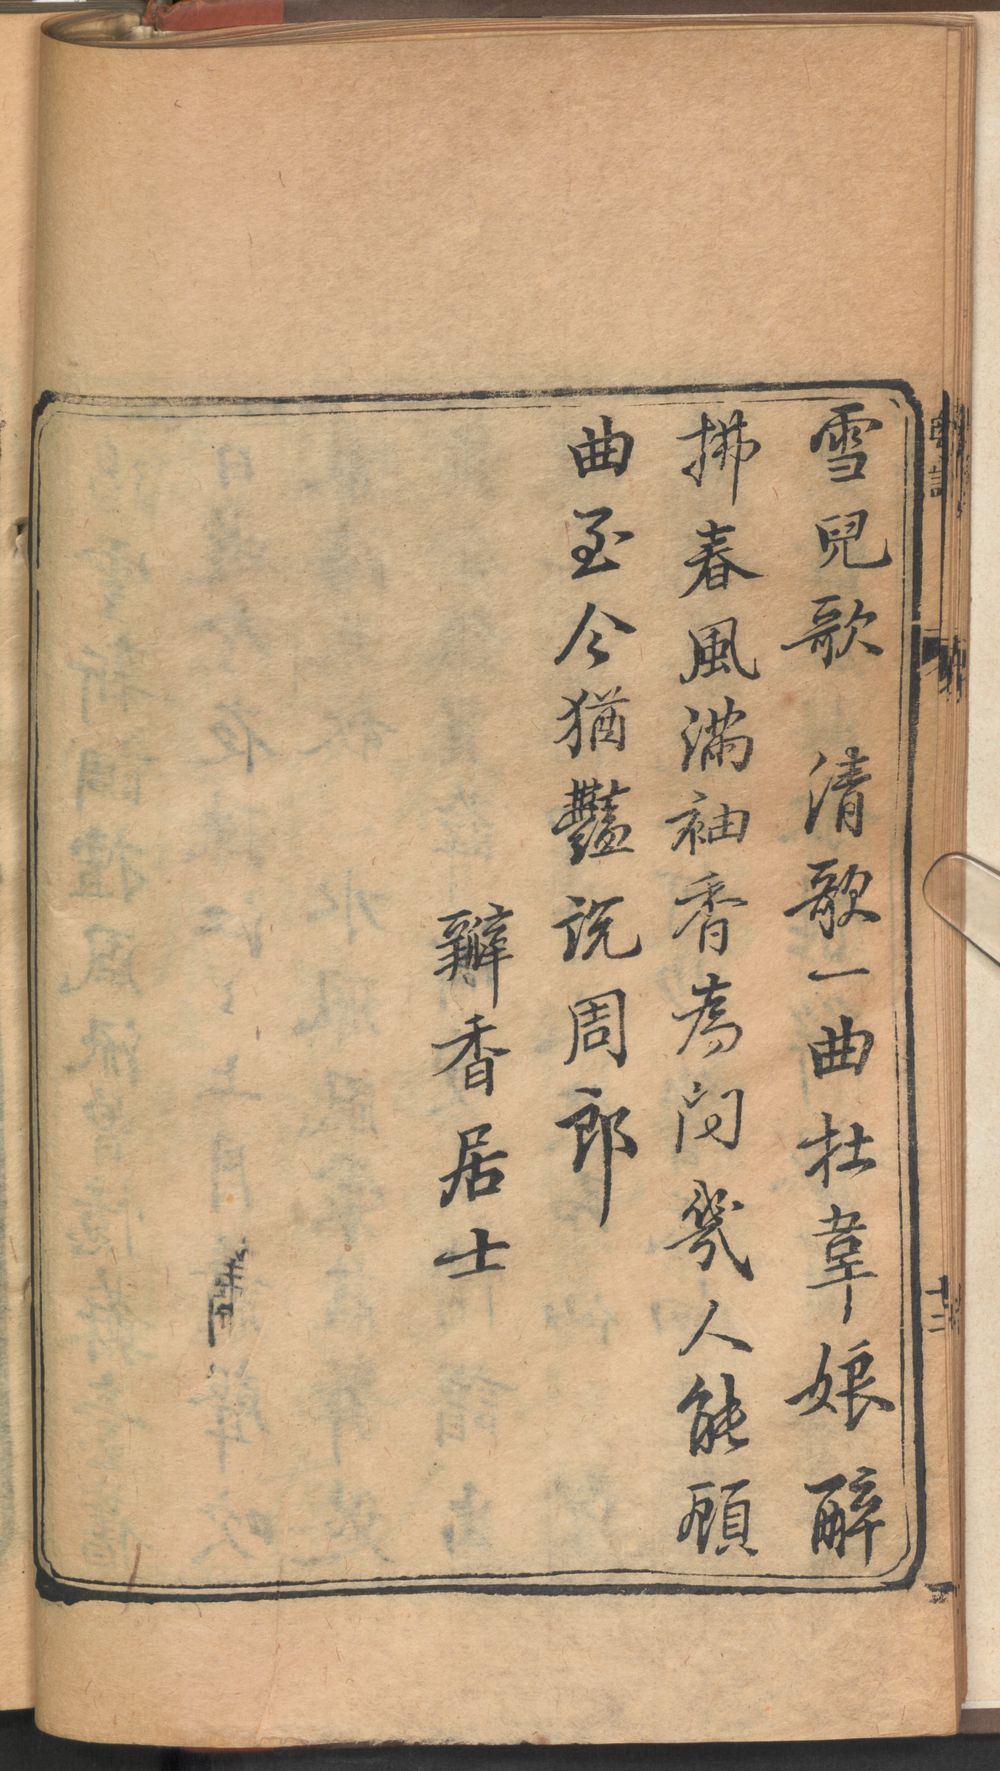 雪兒歌 清歌一曲杜韋娘醉
拂春風滿袖香為问幾人能顧
曲至今猶豔説周郎
辦香居士
十二